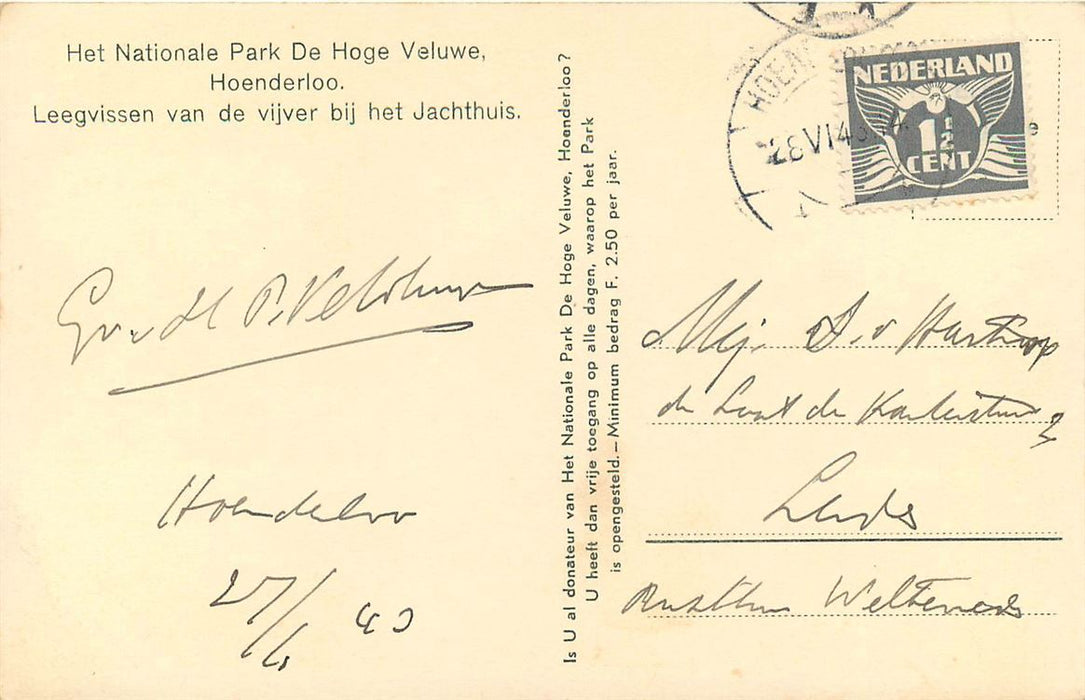 Het Nationale Park De Hoge Veluwe,
Hoenderloo.
Leegvissen van de vijver bij het Jachthuis.
P. Veldhuyzen
Hoenderloo
27/6 43
Is U al donateur van Het Nationale Park De Hoge Veluwe, Hoenderloo?
U heeft dan vrije toegang op alle dagen, waarop het Park
is opengesteld.—Minimum bedrag F. 2.50 per jaar.
28 VI 43
NEDERLAND
1½
CENT
Mej. v
de de
Leiden
Rusthuis Weltevreden